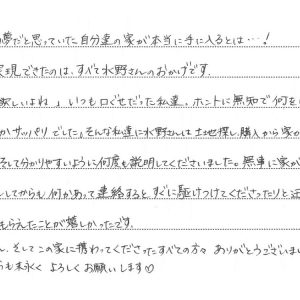 の夢だと思っていた自分達の家が本当に手に入るとは…!
実現できたのは、すべて水野さんのおかげです。
欲しいよね」いつも口ぐせだった私達。ホントに無知で何を
かサッパリでした。そんな私達に水野さんは土地探し、購入から家の
そして分かりやすいように何度も説明してくださいました。無事に家が
してからも何かあって連絡すると、すぐに駆けつけてくださったりと迅
もらえたことが嬉しかったです。
ん、そしてこの家に携わってくださったすべての方々 ありがとうございまし
らも末永く よろしくお願いします♡